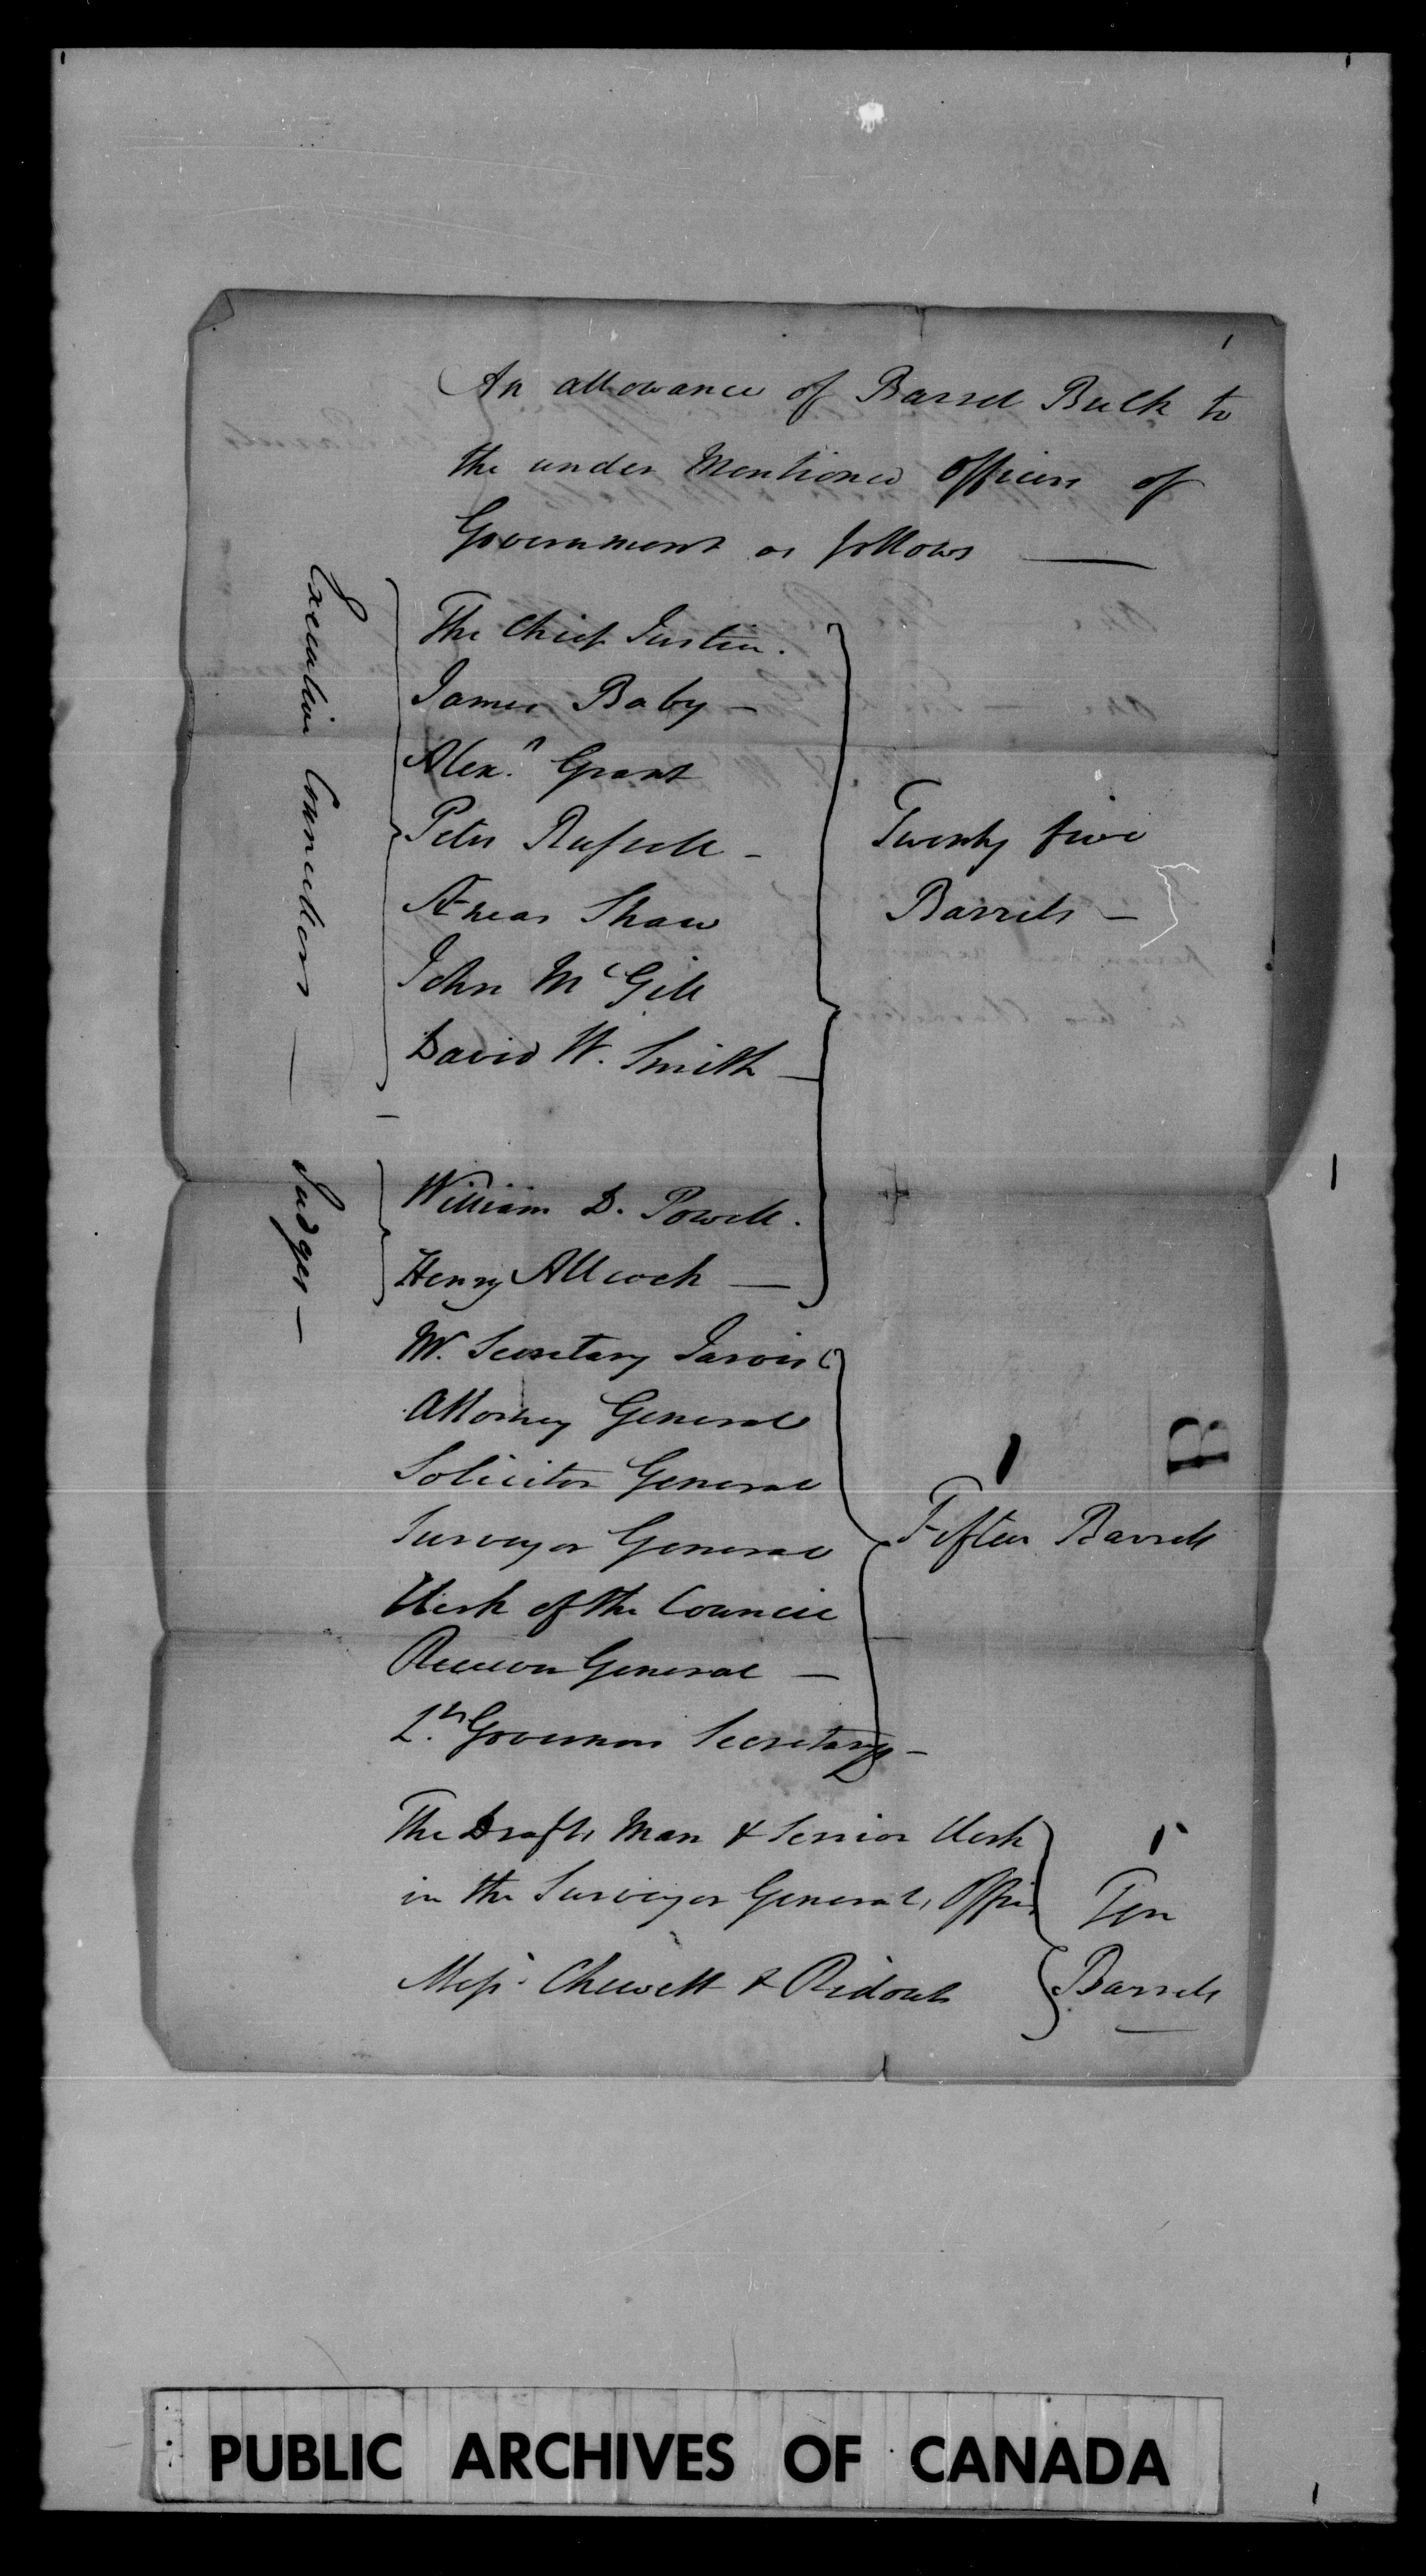 An allowance of Barrel Bulk to
the under Mentioned Officers of
Government as follows —
Executive Councillors —
The Chief Justice.
James Baby —
Alexr. Grant
Peter Russell —
Æneas Shaw
John McGill
David W. Smith —
Twenty five
Barrels —
Judges —
William D. Powell.
Henry Allcock —
Mr. Secretary Jarvis
Attorney General
Solicitor General
Surveyor General
Clerk of the Council
Receiver General —
Lt. Governors Secretary —
Fifteen Barrels
B
The Drafts Man & Senior Clerk
in the Surveyor Generals Office
Messrs. Chewett & Ridout
Ten
Barrels
PUBLIC ARCHIVES OF CANADA